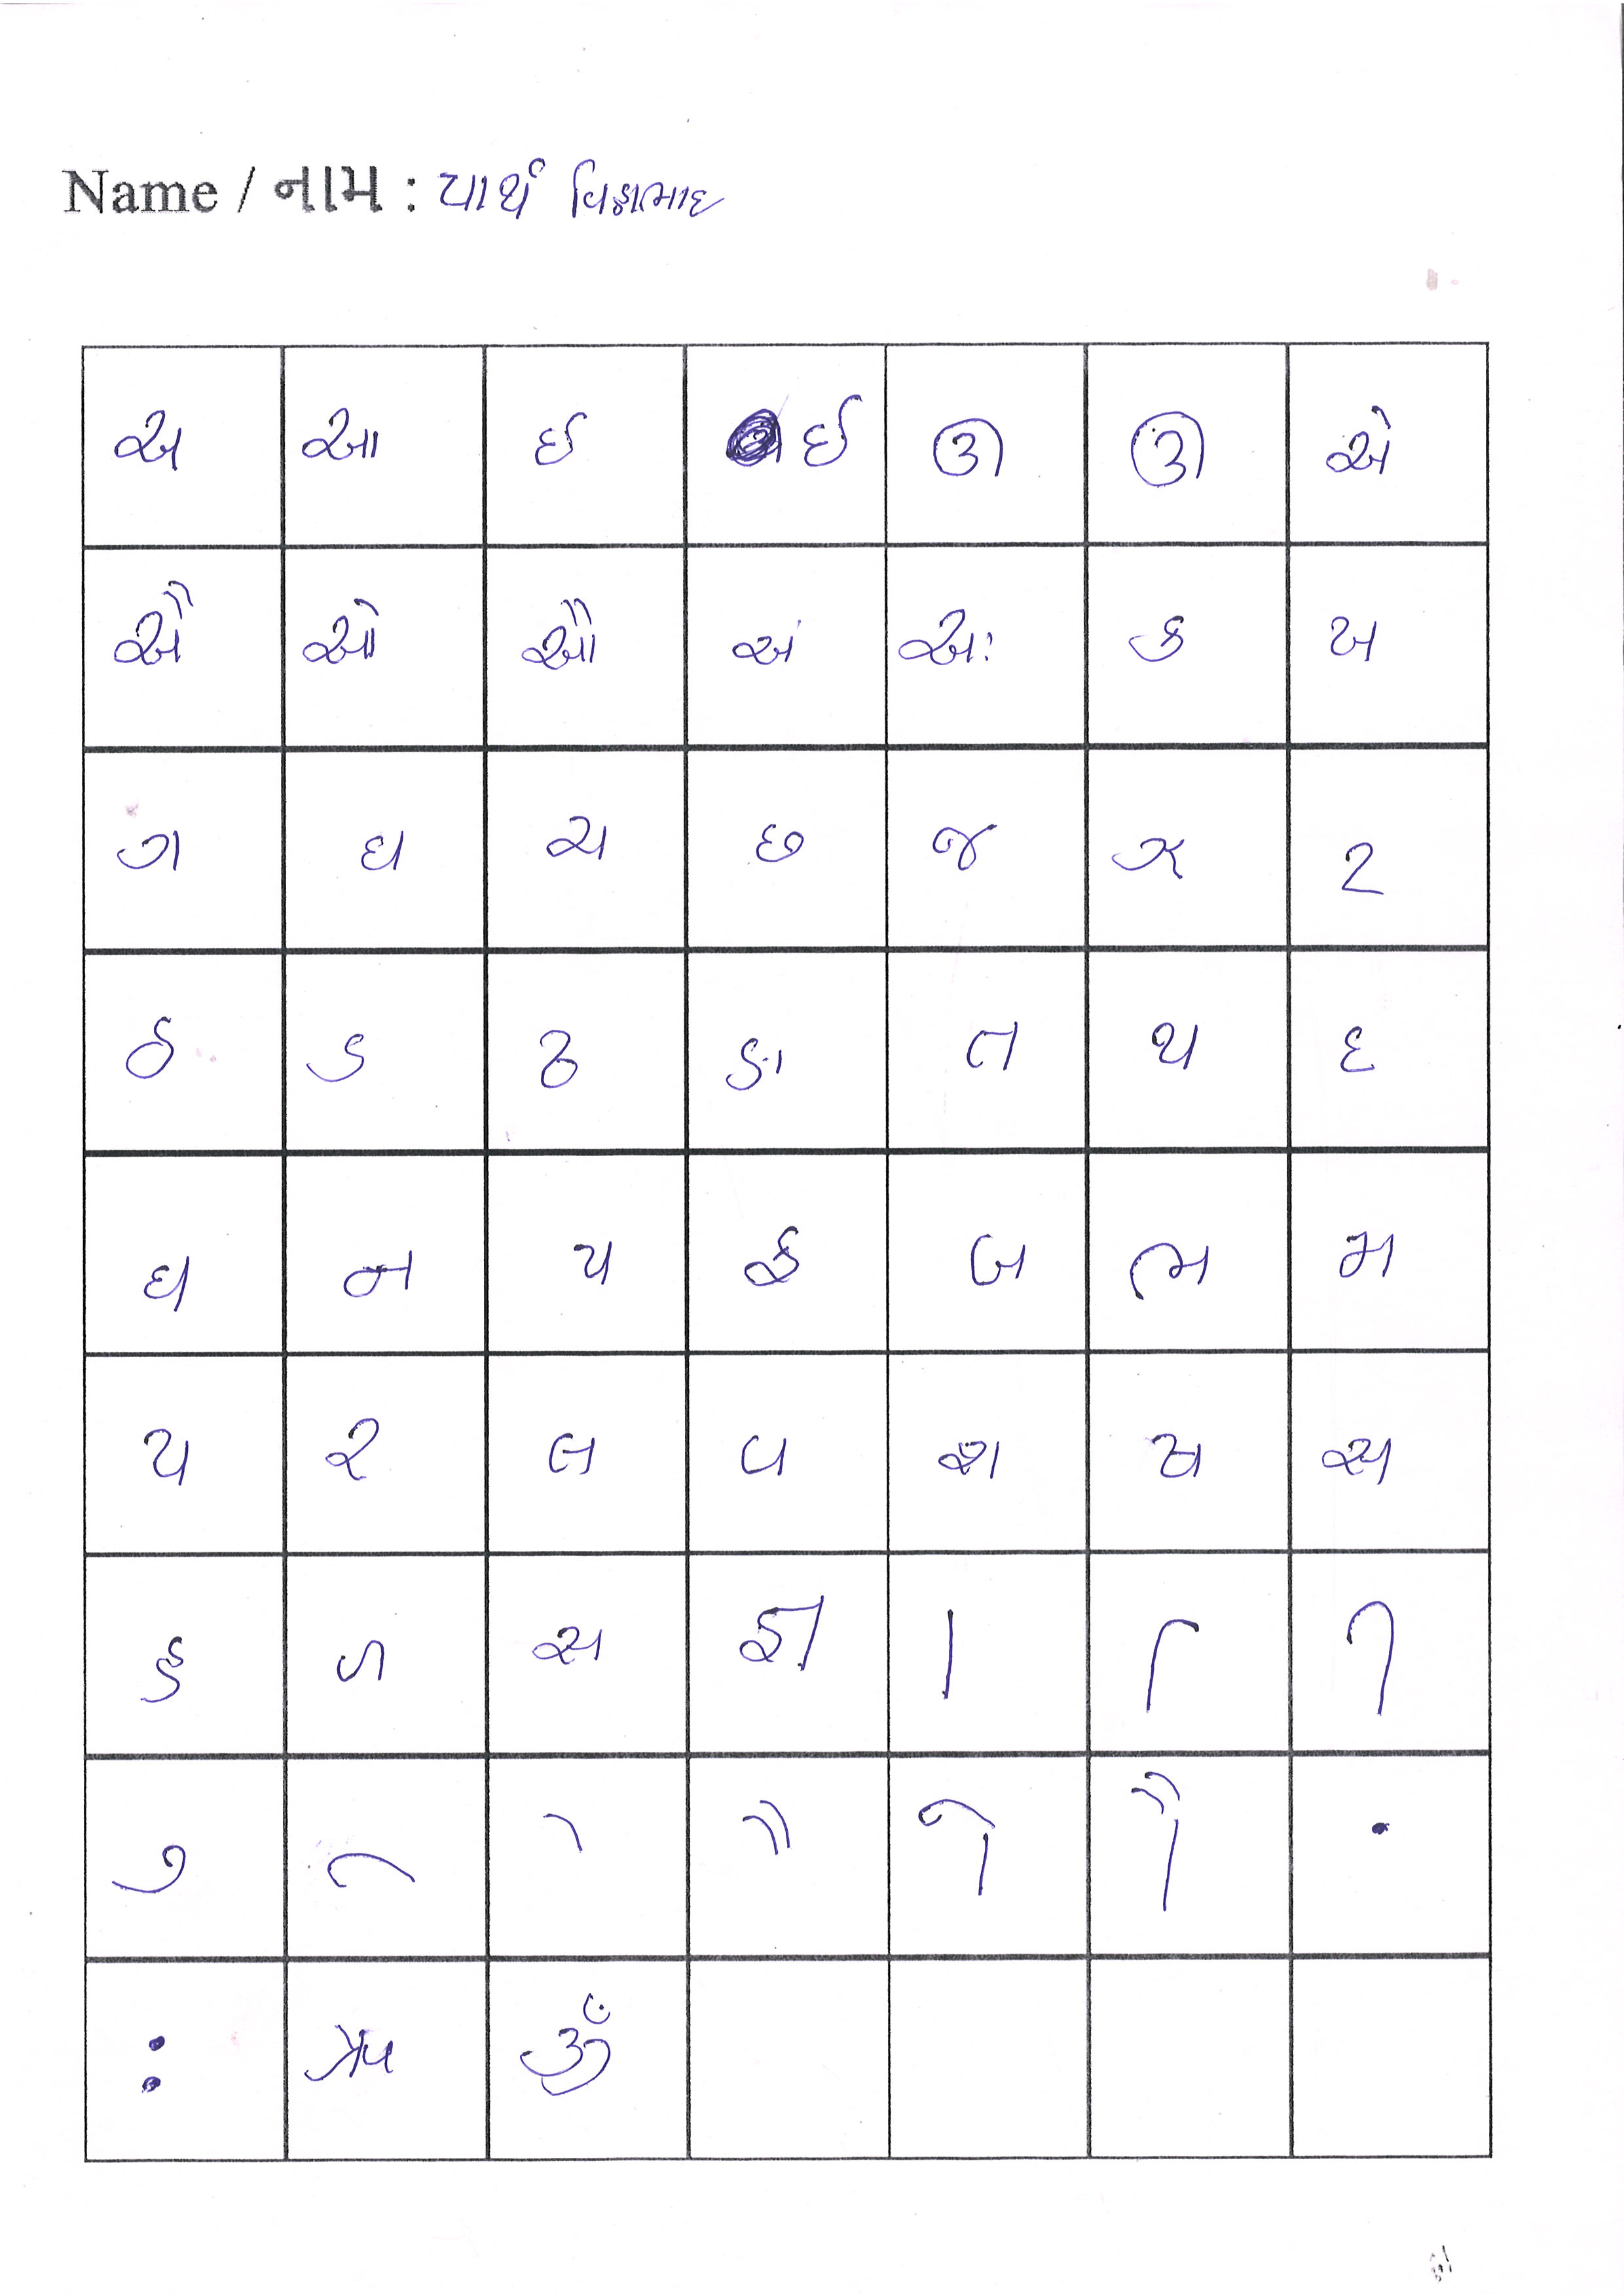 Name / નામ : પાર્થ
અ આ ઈ ઈ ઊ ઊ એ
ઐ ઓ ઔ અં અઃ ક ખ
ગ ઘ ચ છ જ ઝ ટ
ઠ ડ ઢ ણ ત થ દ
ધ ન પ ફ બ ભ મ
ય ર લ વ શ ષ સ
હ ળ ક્ષ જ્ઞ ા િ ી
ુ ૂ ે ૈ ો ૌ ં
ઃ ૐ